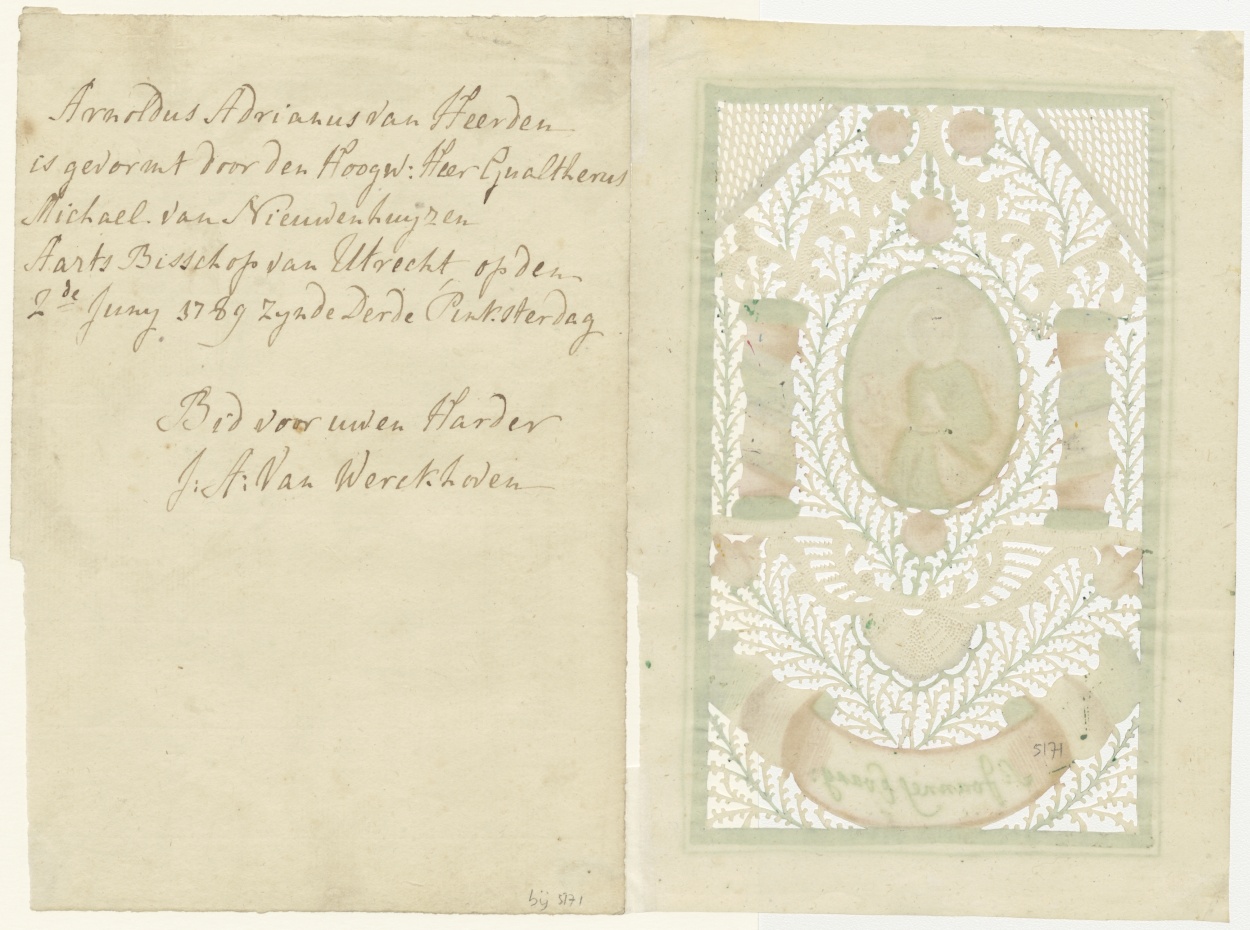 Arnoldus Adrianus van Heerden
is gevormt door den Hoogw: Heer Gualtherus
Michael. van Nieuwenhuyzen
Aarts Bisschop van Utrecht, op den
2de Juny 1789 Zynde Derde Pinksterdag
Bid voor uwen Harder
J: A: Van Werckhoven
bij 5171
5171
S. Joannes Evang: